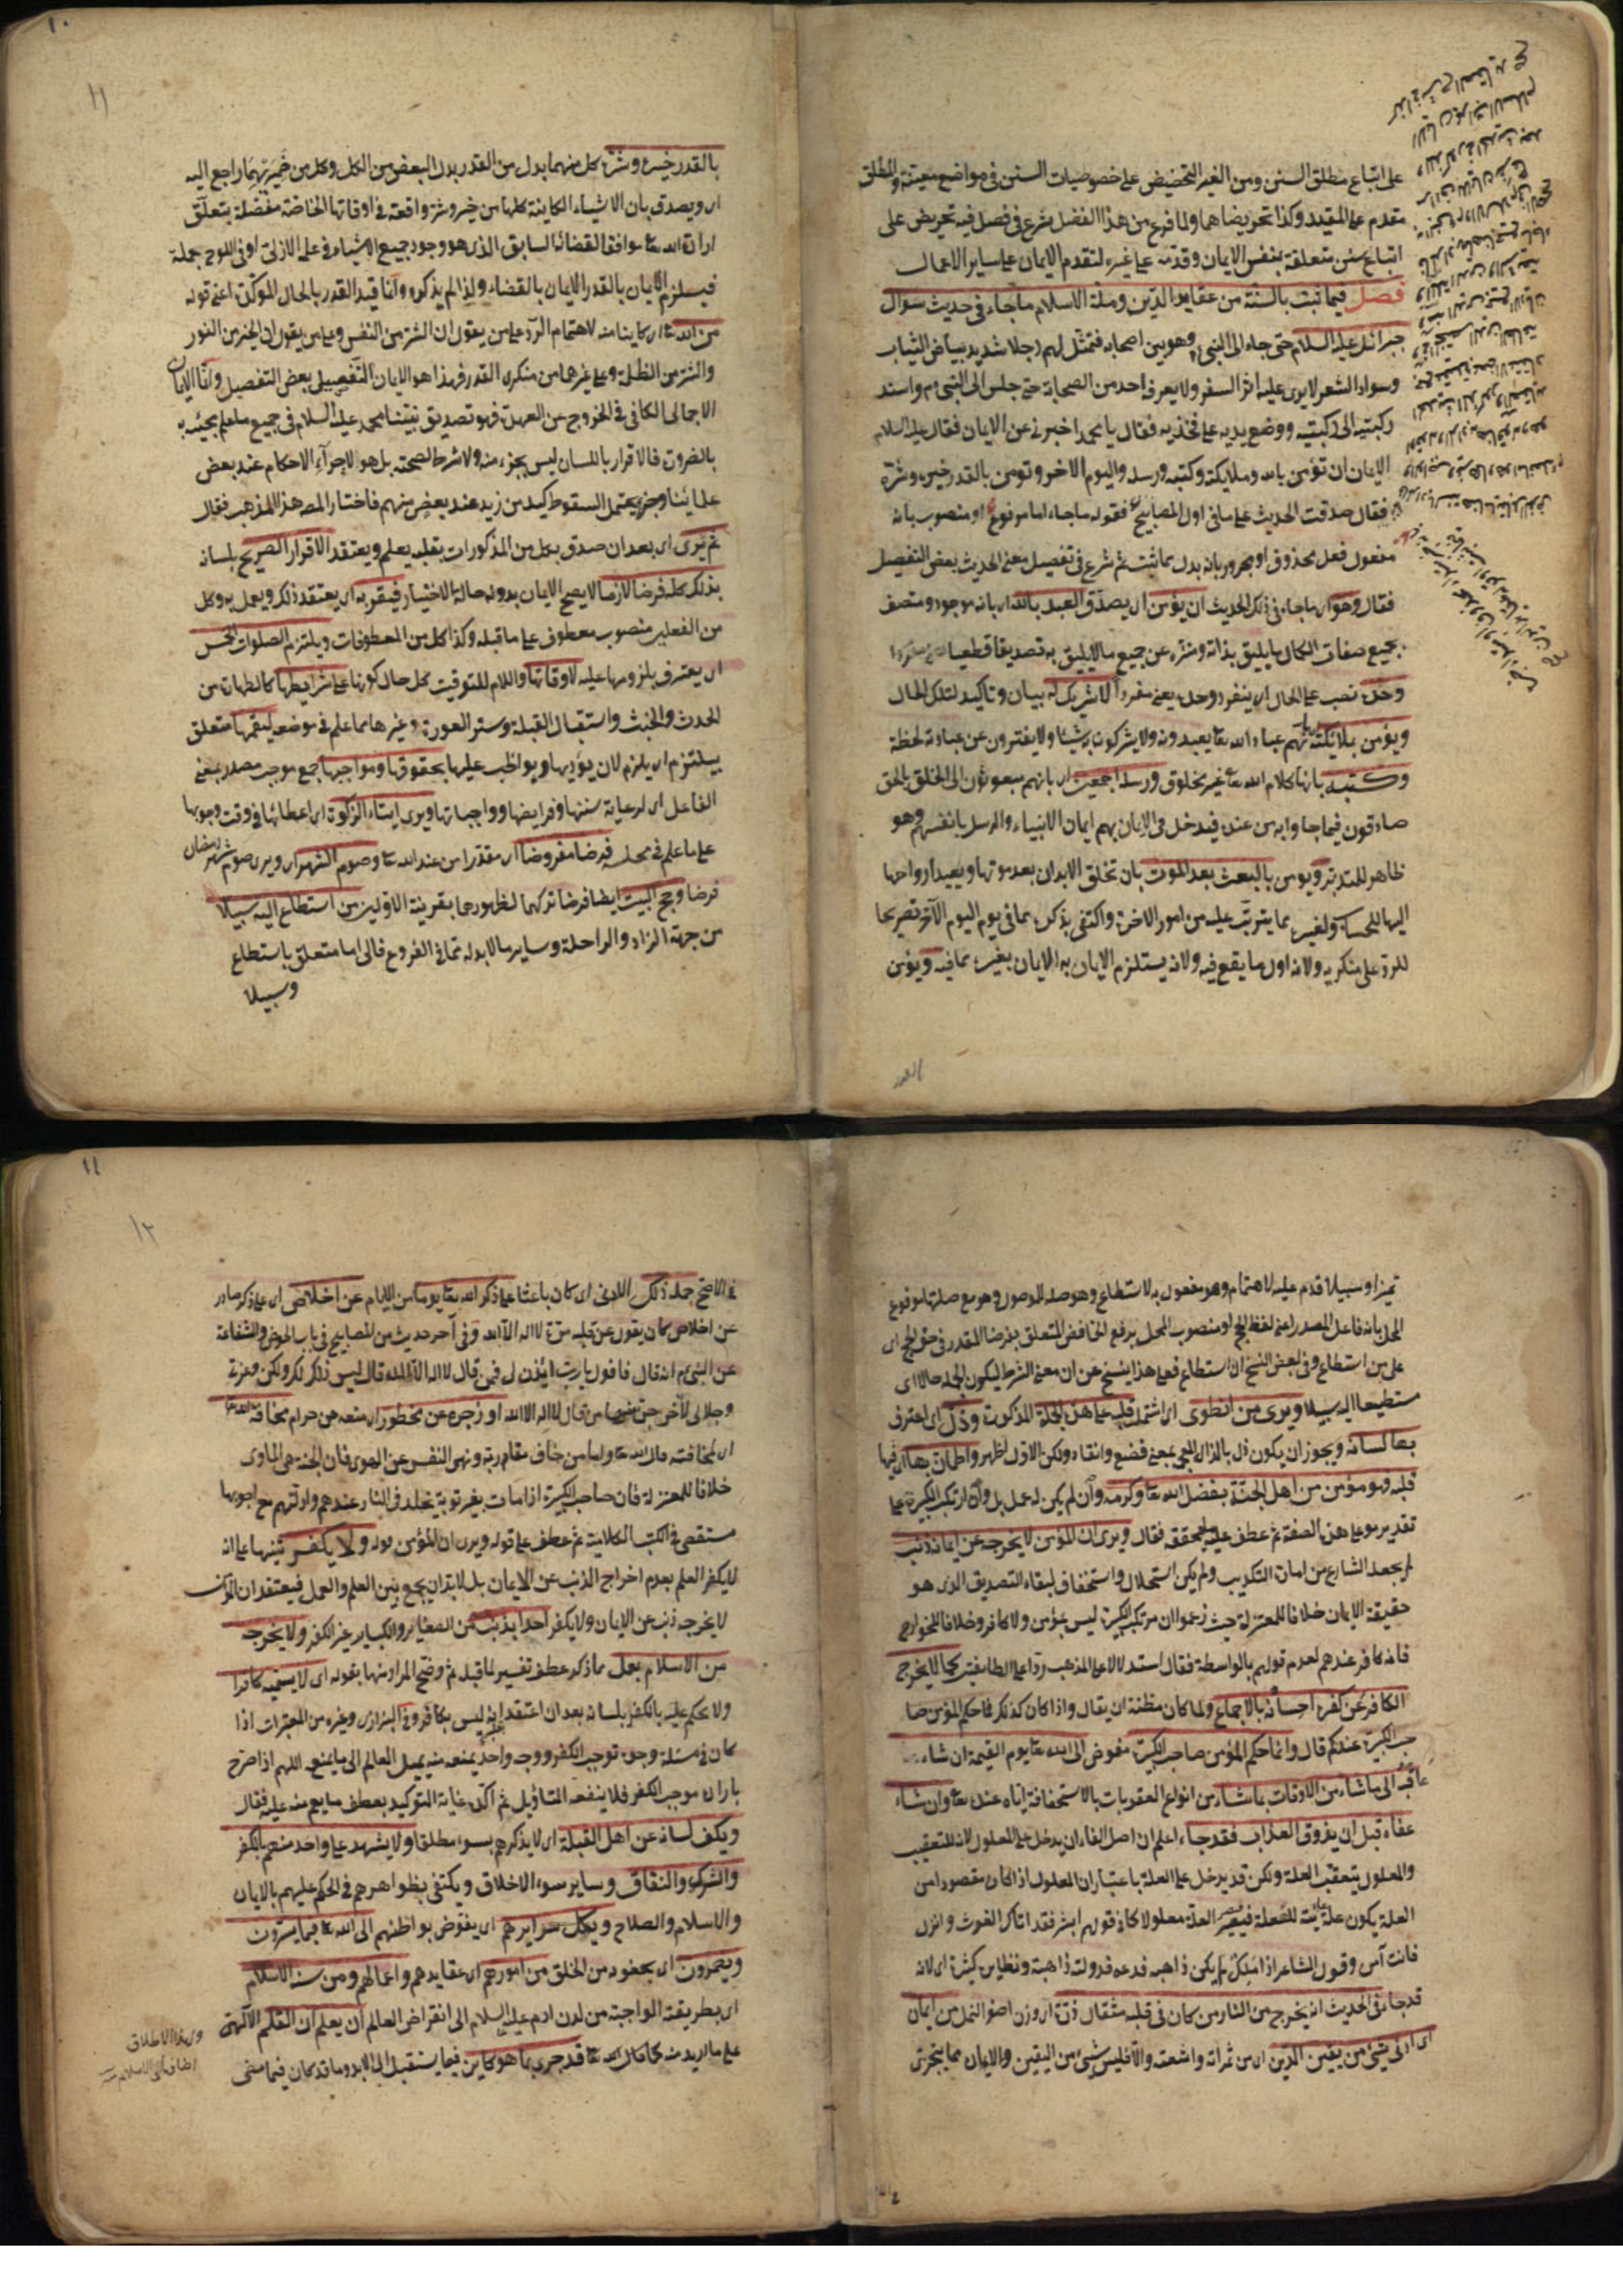 على اتباع مطلق السنن ومن الغير التحضيض على خصوصيات السنن في مواضع معينة والمطلق
مقدم على المقيد وكذا تحريضاهما ولما فرغ من هذا الفصل شرع في فصل فيه تحريض على
اتباع سنن متعلقة بنفس الايمان وقدمه على غيره لتقدم الايمان على ساير الاعمال
فصل فيما ثبت بالسنة من عقايد الدين وملة الاسلام ما جاء في حديث سوال
جبرائل عليه السلام حتى جاء الى النبي وهو بين اصحابه فتمثل لهم رجلا شديد بياض الثياب
وسواد الشعر لا يرى عليه اثر السفر ولا يعرفه احد من الصحابة حتى جلس الى النبي م واسند
ركبتيه الى ركبتيه ووضع يديه على فخذيه فقال يا محمد اخبرني عن الايمان فقال عليه السلام
الايمان ان تؤمن بالله وملايكته وكتبه ورسله واليوم الاخر وتومن بالقدر خيره وشره
فقال صدقت الحديث على ما في اول المصابيح فقوله ما جاء اما مرفوع او منصوب بانه
مفعول فعل محذوف او مجرور بانه بدل مما ثبت ثم شرع في تفصيل معنى الحديث بعض التفصيل
فقال وهو اى ما جاء في ذلك الحديث ان يؤمن اى يصدق العبد بالله اى بانه موجود ومتصف
بجميع صفات الكمال ما يليق بذاته ومنزه عن جميع ما لا يليق به تصديقا قطعيا
وحده نصب على الحال اى ينفرد وحده يعنى منفردا لا شريك له بيان وتاكيد لتلك الحال
ويؤمن بملائكته بانهم عباد الله تعا يعبدونه ولا يشركون به شيئا ولا يفترون عن عبادته لحظة
وكتبه بانها كلام الله تعا غير مخلوق ورسله اجمعين اى بانهم مبعوثون الى الخلق بالحق
صادقون فيما جاوا به من عنده فيدخل في الايمان بهم ايمان الانبياء والرسل بانفسهم وهو
ظاهر للمتدبر ويومن بالبعث بعد الموت بان تخلق الابدان بعد موتها ويعيد ارواحها
اليها للمحاسبة ولغيره مما يترتب عليه من امور الاخرة واكتفى بذكره مما في يوم اليوم الآخر تصريحا
للرد على منكريه ولانه اول ما يقع فيه ولانه يستلزم الايمان به الايمان بغيره مما فيه ويؤمن
بالقدر خيره وشره كل منهما بدل من القدر بدل البعض من الكل وكل من ضميريهما راجع اليه
اى ويصدق بان الاشياء الكاينة كلها من خير وشر واقعة في اوقاتها الخاصة مفصلة بتعلق
ارادة الله تعا موافقا لقضائه السابق الذى هو وجود جميع الاشياء في علمه الازلى او في اللوح جملة
فيستلزم الايمان بالقدر الايمان بالقضاء ولذا لم يذكره وانما قيد القدر بالحال الموكدة اعنى قوله
من الله تعا اى كاينا منه لاهتمام الرد على من يقول ان الشر من النفس وعلى من يقول ان الخير من النور
والشر من الظلمة وعلى غيرهما من منكرى القدر فهذا هو الايمان التفصيلى بعض التفصيل واما الايمان
الاجمالى الكافى في الخروج عن العهدة فهو تصديق نبينا محمد عليه السلام في جميع ما علم مجيئه به
بالضرورة فالاقرار باللسان ليس بجزء منه ولا شرط لصحته بل هو لاجراء الاحكام عند بعض
علمائنا وجزء يحتمل السقوط كيد من زيد عند بعض منهم فاختار المص هذا المذهب فقال
ثم يرى اى بعد ان صدق بكل من المذكورات بقلبه يعلم ويعتقد الاقرار الصريح بلسانه
بذلك كله فرضا لازما لا يصح الايمان بدونه حالة الاختيار فيقر به اى يعتقد ذلك ويعمل به وكل
من الفعلين منصوب معطوف على ما قبله وكذا كل من المعطوفات ويلتزم الصلوات الخمس
اى يعترف بلزومها عليه لاوقاتها واللام للتوقيت كل حال كونها على شرايطها كالطهارة من
الحدث والخبث واستقبال القبلة وستر العورة وغيرها مما علم في موضعه ليقمها متعلق
بيلتزم اى يلزم لان يؤديها ويواظب عليها بحقوقها ومواجبها جمع موجب مصدر بمعنى
الفاعل اى لرعاية سننها وفرايضها وواجباتها ويرى ايتاء الزكوة اى اعطائها في وقت وجوبها
على ما علم في محله فرضا مفروضا اى مقدرا من عند الله تعا وصوم الشهر اى ويرى صوم شهر رمضان
فرضا وحج البيت ايضا فرضا تركهما لظهورهما بقرينة الاولين من استطاع اليه سبيلا
من جهة الزاد والراحلة وساير ما لا بد له مما في الفروع فالى اما متعلق باستطاع
وسبيلا
تميز او سبيلا قدم عليه لاهتمام وهو مفعول به لاستطاع وهو صلة الموصول وهو مع صلتها مرفوع
المحل بانه فاعل المصدر اعنى لفظ الحج او منصوب المحل برفع الخافض المتعلق بفرضا المقدر في حق الحج اى
على من استطاع وفي بعض النسخ ان استطاع فعلى هذا ينسخ عن ان معنى الشرط ليكون الجملة حالا اى
مستطيعا اليه سبيلا ويرى من انطوى اى اشتمل قلبه على هذه الجملة المذكورة وذل اى اعترف
بها لسانه ويجوز ان يكون ذل بالذال المعجمة بمعنى خضع وانقاد ولكن الاول اظهر واطمأن بها اى فيها
قلبه فهو مؤمن من اهل الجنة بفضل الله تعا وكرمه وان لم يكن له عمل بل وان ارتكب الكبيرة على
تقدير موته على هذه الصفة ثم عطف عليه المحققة فقال ويرى ان المؤمن لا يخرجه عن ايمانه ذنب
لم يجعله الشارع من امارات التكذيب ولم يكن استحلال واستخفاف لبقاء التصديق الذى هو
حقيقة الايمان خلافا للمعتزلة حيث زعموا ان مرتكب الكبيرة ليس بمؤمن ولا كافر وخلافا للخوارج
فانه كافر عندهم لعدم قولهم بالواسطة فقال استدلالا على المذهب ردا على الطايفتين كما لا يخرج
الكافر عن كفره احسانه بالاجماع ولما كان مظنة ان يقال واذا كان كذلك فما حكم المؤمن صا
حب الكبيرة عندكم قال وانما حكم المؤمن صاحب الكبيرة مفوض الى الله تعا يوم القيمة ان شاء
عاقبه الى ما شاء من الاوقات بما شاء من انواع العقوبات بالاستحقاقه اياه عنده تعا وان شاء
عفاه قبل ان يذوق العذاب فقد جاء اعلم ان اصل الفاء ان يدخل على المعلول لانه للتعقيب
والمعلول يتعقب العلة ولكن قد يدخل على العلة باعتبار ان المعلول اذا كان مقصودا من
العلة يكون علة غائية للعلة فيصير العلة معلولا كما في قولهم ابشر فقد اتاك الغوث وانزل
فانت آمن وقول الشاعر اذا ملك لم يكن ذا هبه فدعه فدولته ذاهبة ونظايره كثيرة اى لانه
قد جاء في الحديث انه يخرج من النار من كان في قلبه مثقال ذرة اى وزن اصغر النمل من ايمان
اى ادنى شئ من يقين الدين اى من ثمراته واشعته والا فليس شئ من اليقين والايمان مما يتجزى
في الاصح جملة ذلك الادنى اى كان باعثا على ذكر الله تعا يوما من الايام عن اخلاص اى على ذكر صادر
عن اخلاص كان يقول عن قلبه مرة لا اله الا الله وفي آخر حديث من المصابيح في باب الحوض والشفاعة
عن النبي م انه قال فاقول يا رب ائذن لى فيمن قال لا اله الا الله قال ليس ذلك لك ولكن وعزتى
وجلالى لاخرجن منها من قال لا اله الا الله او زجره عن محظور اى منعه من حرام مخافة الله تعا
اى لمخافته قال الله تعا واما من خاف مقام ربه ونهى النفس عن الهوى فان الجنة هى الماوى
خلافا للمعتزلة فان صاحب الكبيرة اذا مات بغير توبة يخلد في النار عندهم وادلتهم مع اجوبتها
مستقصى في الكتب الكلامية ثم عطف على قوله ويرى ان المؤمن قوله ولا يكفر تنبيها على انه
لا يكفى العلم بعدم اخراج الذنب عن الايمان بل لا بد ان يجمع بين العلم والعمل فيعتقد ان المؤمن
لا يخرجه ذنب عن الايمان ولا يكفر احدا بذنب من الصغاير والكباير غير الكفر ولا يخرجه
من الاسلام بعمل مما ذكر عطف تفسير لما قبله ثم وضح المراد منها بقوله اى لا يسميه كافرا
ولا يحكم عليه بالكفر بلسانه بعد ان اعتقد انه ليس بكافر وفي البزازى وغيره من المعتبرات اذا
كان في مسئلة وجوه توجب الكفر ووجه واحد يمنعه منه يميل العالم الى ما يمنع اللهم اذا صرح
بارادة موجب الكفر فلا ينفعه التاويل ثم اكد غاية التوكيد بعطف ما يعم منه عليه فقال
ويكف لسانه عن اهل القبلة اى لا يذكرهم بسوء مطلقا ولا يشهد على واحد منهم بالكفر
والشرك والنفاق وساير سوء الاخلاق ويكتفى بظواهرهم في الحكم عليهم بالايمان
والاسلام والصلاح ويكل سرايرهم اى يفوض بواطنهم الى الله تعا فيما يسرون
ويضمرون اى يخفونه من الخلق من امورهم اى عقايدهم واعمالهم ومن سنة الاسلام
اى بطريقته الواجبة من لدن ادم عليه السلام الى انقراض العالم ان يعلم ان القلم الالهى
على ما اريد منه كما قال الله تعا قد جرى بما هو كاين فيما يستقبل الى الابد وما قد كان فيما مضى